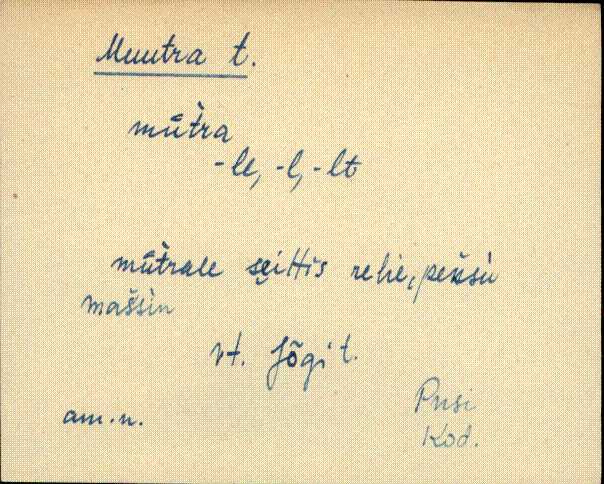 Muutra t.
mūtra
-le, -l, -lt
mūtrale sẹittis rehe, peksu
maššin
vt. Jõgi t.
am. n.
Pusi
Kod.